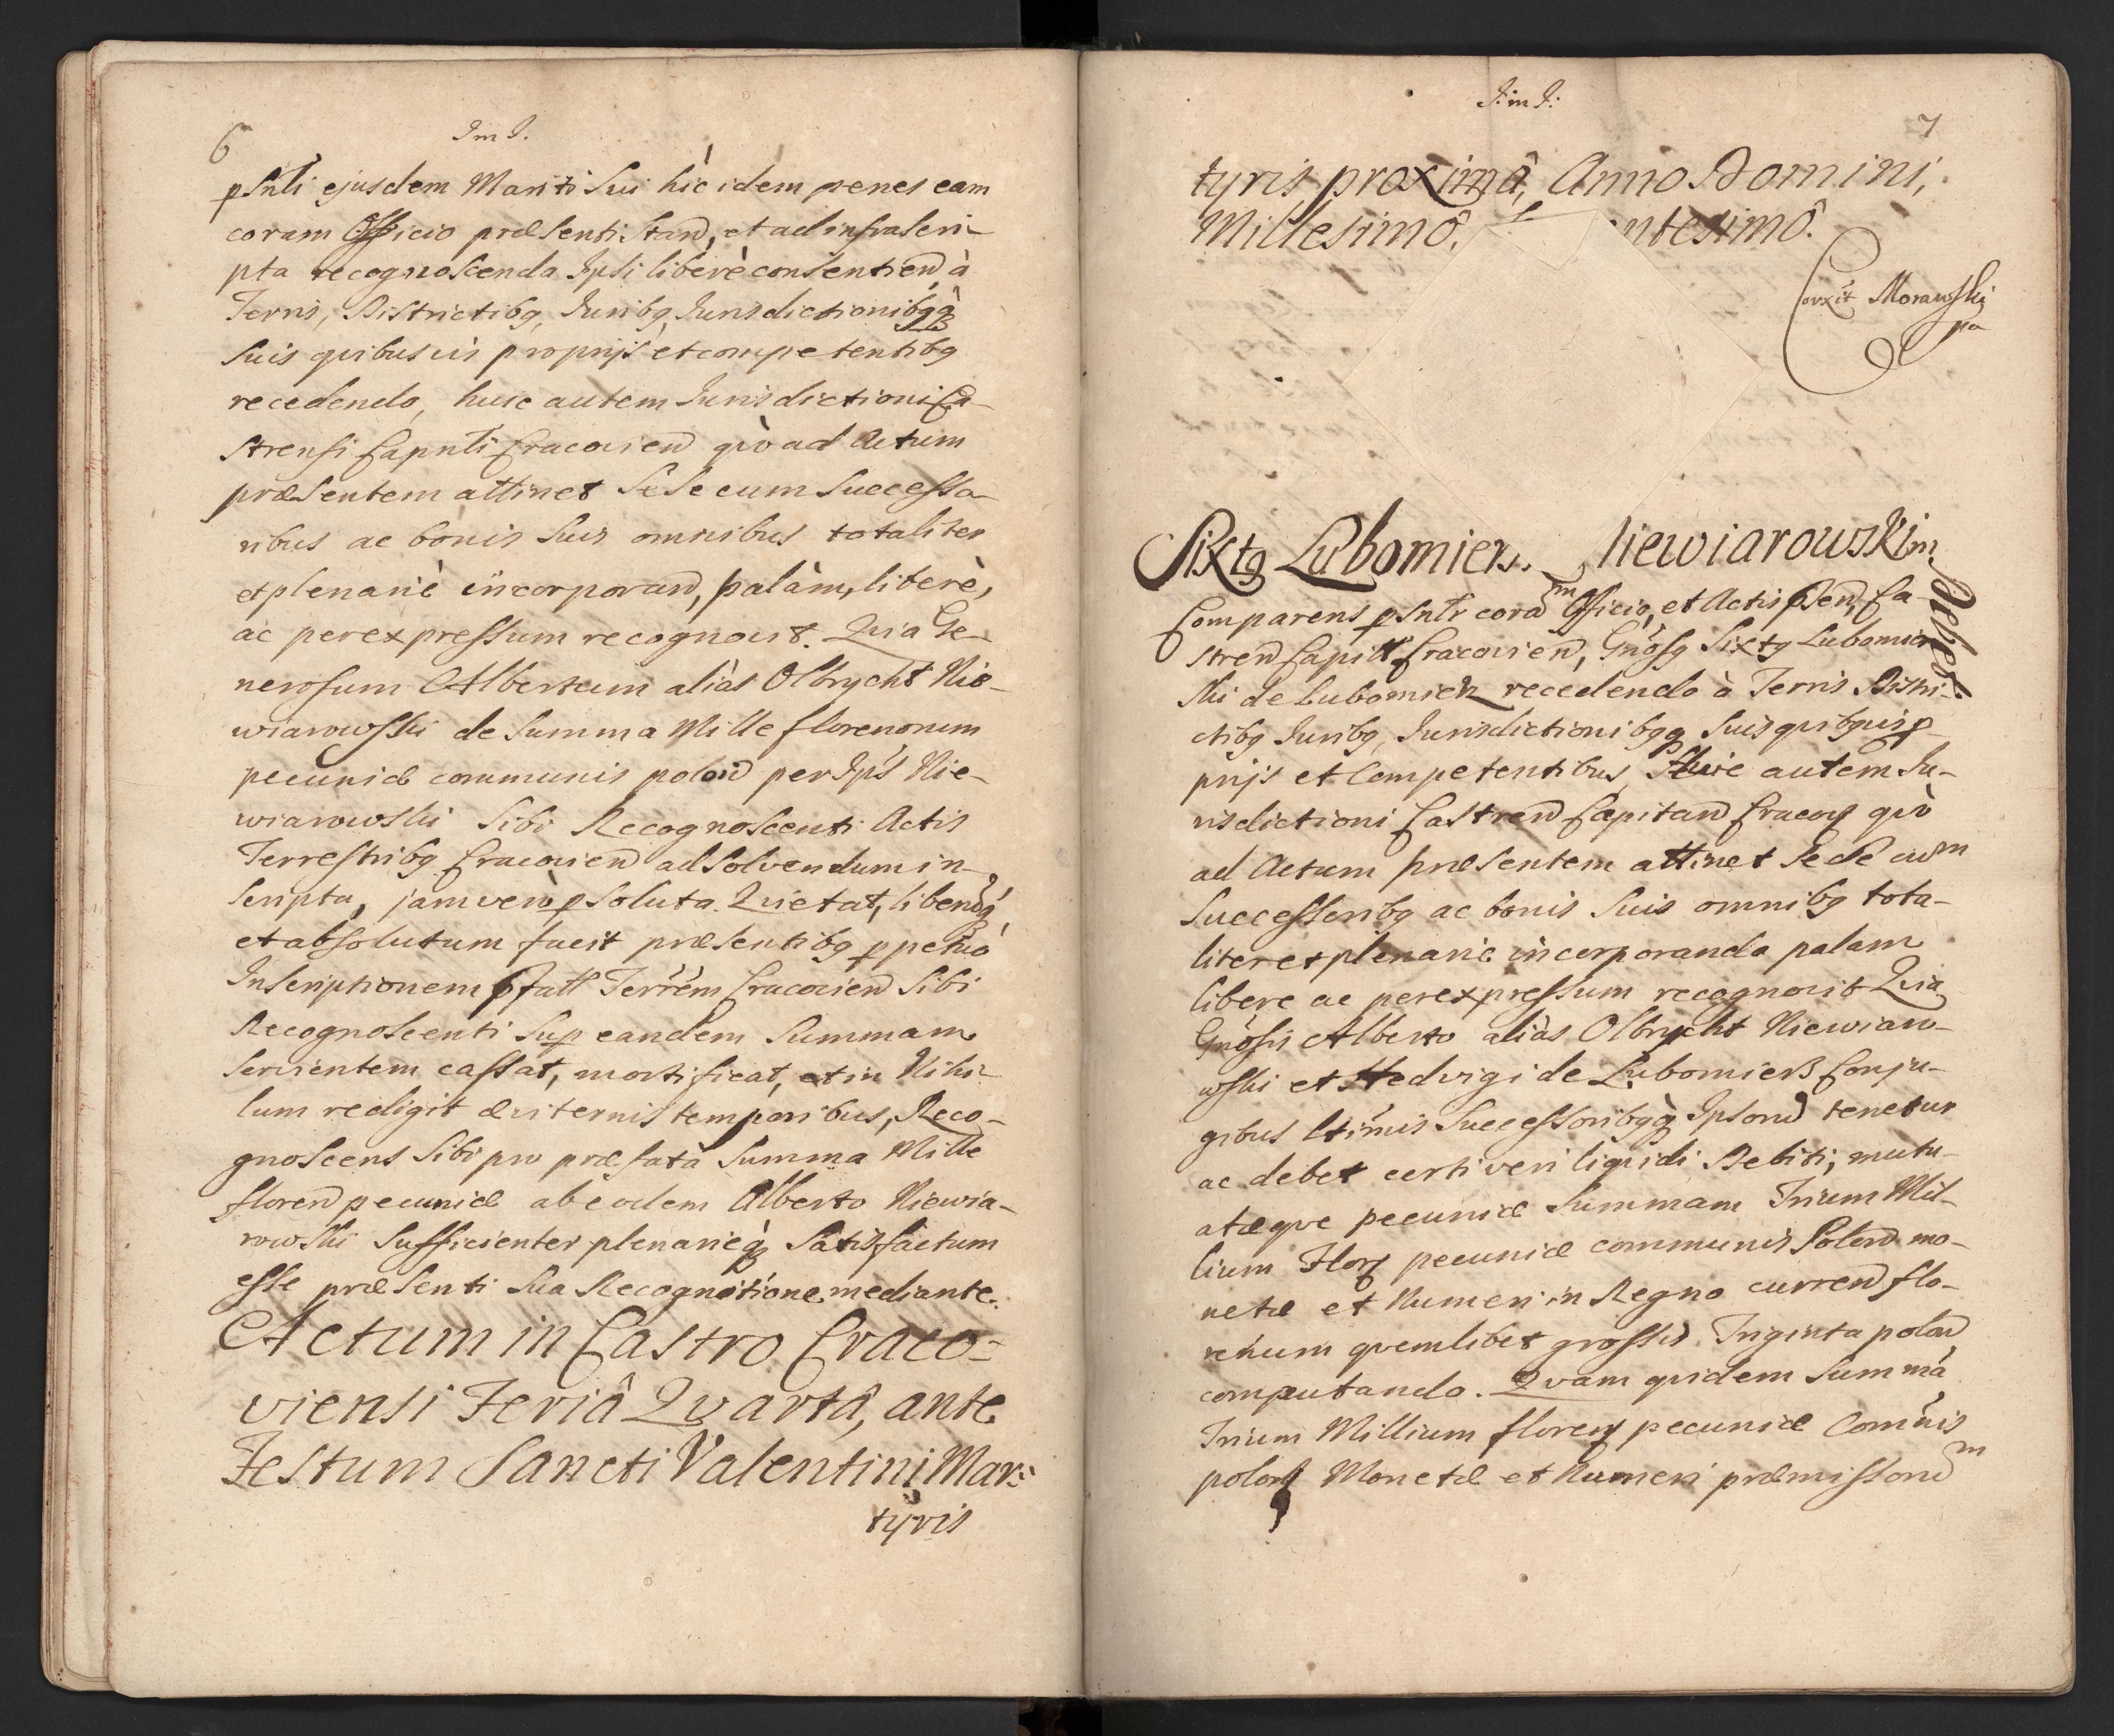 6
J m J.
pSnti ejusdem Mariti Sui hic idem penes eam
coram Officio præsenti Stan, et ad infrascri-
pta recognoscenda Ipsi liberè consentien, à
Terris, Districtibg, Juribg, Jurisdictionibgq
Suis quibusvis proprijs et competentibg
recedendo, huic autem Jurisdictioni Ca-
strensi Capnli Cracovien qvo ad Actum
præsentem attinet Sese cum Successo-
ribus ac bonis Suis omnibus totaliter
et plenariè incorporan, palàm, liberè,
ac per expressum recognovit. Quia Ge-
nerosum Albertum aliàs Olbrycht Nie-
wiarowski de Summa Mille florenorum
pecuniæ communis polon per Ips Nie-
wiarowski Sibi Recognoscenti Actis
Terrestribg Cracovien ad Solvendum in-
scripta, jam verò pSoluta. Quietat, liberumq
et absolutum facit præsentibg ppetuò
Inscriptionem pfatt Terrem Cracovien Sibi
Recognoscenti Sup eandem Summam
Servientem cassat, mortificat, et in Nihi-
lum redigit æviternis temporibus, Reco-
gnoscens Sibi pro præfatà Summa Mille
floren pecuniæ ab eodem Alberto Niewia-
rowski Sufficienter plenarieq Satisfactum
esse præsenti Sua Recognitione mediante.
Actum in Castro Craco=
viensi Feriâ Qvartâ, ante
Festum Sancti Valentini Mar=
tyris
J: m J:
7
tyris proximâ, Anno Domini,
Millesimô, ntesimô.
Corxit Morawski
pa
Sixtg Lubomiers. Niewiarowskim
Debet.
Comparens pSntr coram Officio, et Actis psen, Ca-
stren Capitt Cracovien, Gnosg Sixtg Lubomier
ski de Lubomierz recedendo à Terris Distri-
ctibg Juribg, Jurisdictionibgq Suis quibguis p
prijs et Competentibus, Huic autem Ju-
risdictioni Castren Capitan Cracov qvò
ad Actum præsentem attinet Sese cum
Successoribg ac bonis Suis omnibg tota-
liter et plenarie incorporando palam
libere ac per expressum recognovit Quia
Gnosis Alberto aliàs Olbrycht Niewiaro-
wski et Hedvigi de Lubomierz Conju-
gibus ltimis Successoribgq Ipsorum tenetur
ac debet certi veri liqvidi Debiti, mutu-
atæqve pecuniæ Summam Trium Mil-
lium Flor pecuniæ communis Polon mo-
netæ et Numeri in Regno curren flo-
renum qvemlibet grossis Triginta polon
computando. Qvam qvidem Summa
Trium Millium floren pecuniæ Comunis
polon Monetæ et Numeri præmissorum